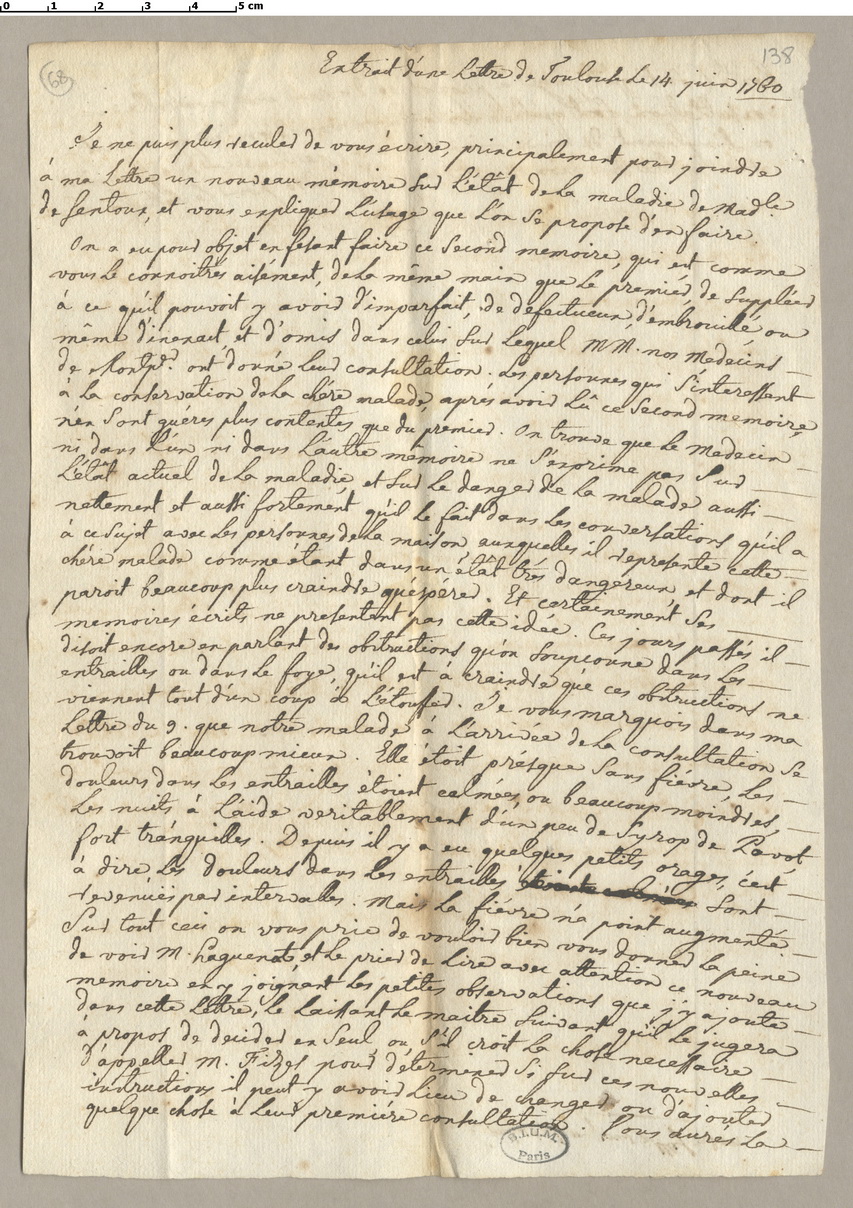 0 1 2 3 4 5 cm
68
138
Extrait d'une Lettre de Toulouse Le 14 juin 1760
Je ne puis plus reculer de vous écrire, principalement pour joindre
à ma Lettre un nouveau mémoire sur L'êtât de la maladie de Mad.le
de Sentour, et vous expliquer L'usage que L'on se propose d'en faire.
On a eu pour objet en fesant faire ce second memoire, qui est comme
vous le connoitrés aisément, de la même main que Le premier, de suppléer
à ce qu'il pouvoit y avoir d'imparfait, de defectueux, d'embrouillé ou
même d'inexact, et d'omis dans celui sur Lequel MM. nos Medecins
de Montp.er ont donné Leur consultation. Les personnes qui s'interessent
à la conservation de la chére malade, aprés avoir Lû ce second memoire,
n'en sont guéres plus contentes que du premier. On trouve que Le medecin
ni dans L'un ni dans L'autre mémoire ne s'exprime pas sur
L'êtat actuel de la maladie et sur Le danger de la malade aussi
nettement et aussi fortement qu'il Le fait dans Les conversations qu'il a
à ce sujet avec Les personnes de la maison auxquelles il represente cette
chére malade comme étant dans un êtât trés dangereux et dont il
paroit beaucoup plus craindre qu'espérer. Et certainement ses
memoires écrits ne presentent pas cette idée. Ces jours passés il
disoit encore en parlant des obstructions qu'on soupconne dans Les
entrailles ou dans Le foye, qu'il est à craindre que ces obstructions ne
viennent tout d'un coup à L'étouffer. Je vous marquois dans ma
Lettre du 9. que notre malade à L'arrivée de la consultation se
trouvoit beaucoup mieux. Elle êtoit présque sans fiévre, Les
douleurs dans Les entrailles êtoient calmées, ou beaucoup moindres,
Les nuits à L'aide veritablement d'un peu de Syrop de Pavot,
fort tranquilles. Depuis il y a eu quelques petits orages, c'est
à dire, Les douleurs dans Les entrailles sont
revenües par intervalles. Mais La fiévre n'a point augmenté.
Sur tout ceci on vous prie de vouloir bien vous donner La peine
de voir M. Haguenot et Le prier de Lire avec attention ce nouveau
memoire en y joignant Les petites observations que j'y ajoute
dans cette Lettre, Le Laissant Le maitre suivant qu'il Le jugera
à propos de decider en seul ou s'il croit La chose necessaire
d'appeller M. Fizes pour déterminer si sur ces nouvelles
instructions il peut y avoir Lieu de changer ou d'ajouter
quelque chose à Leur premiére consultation. Vous aurés La
B.I.U.M. Paris